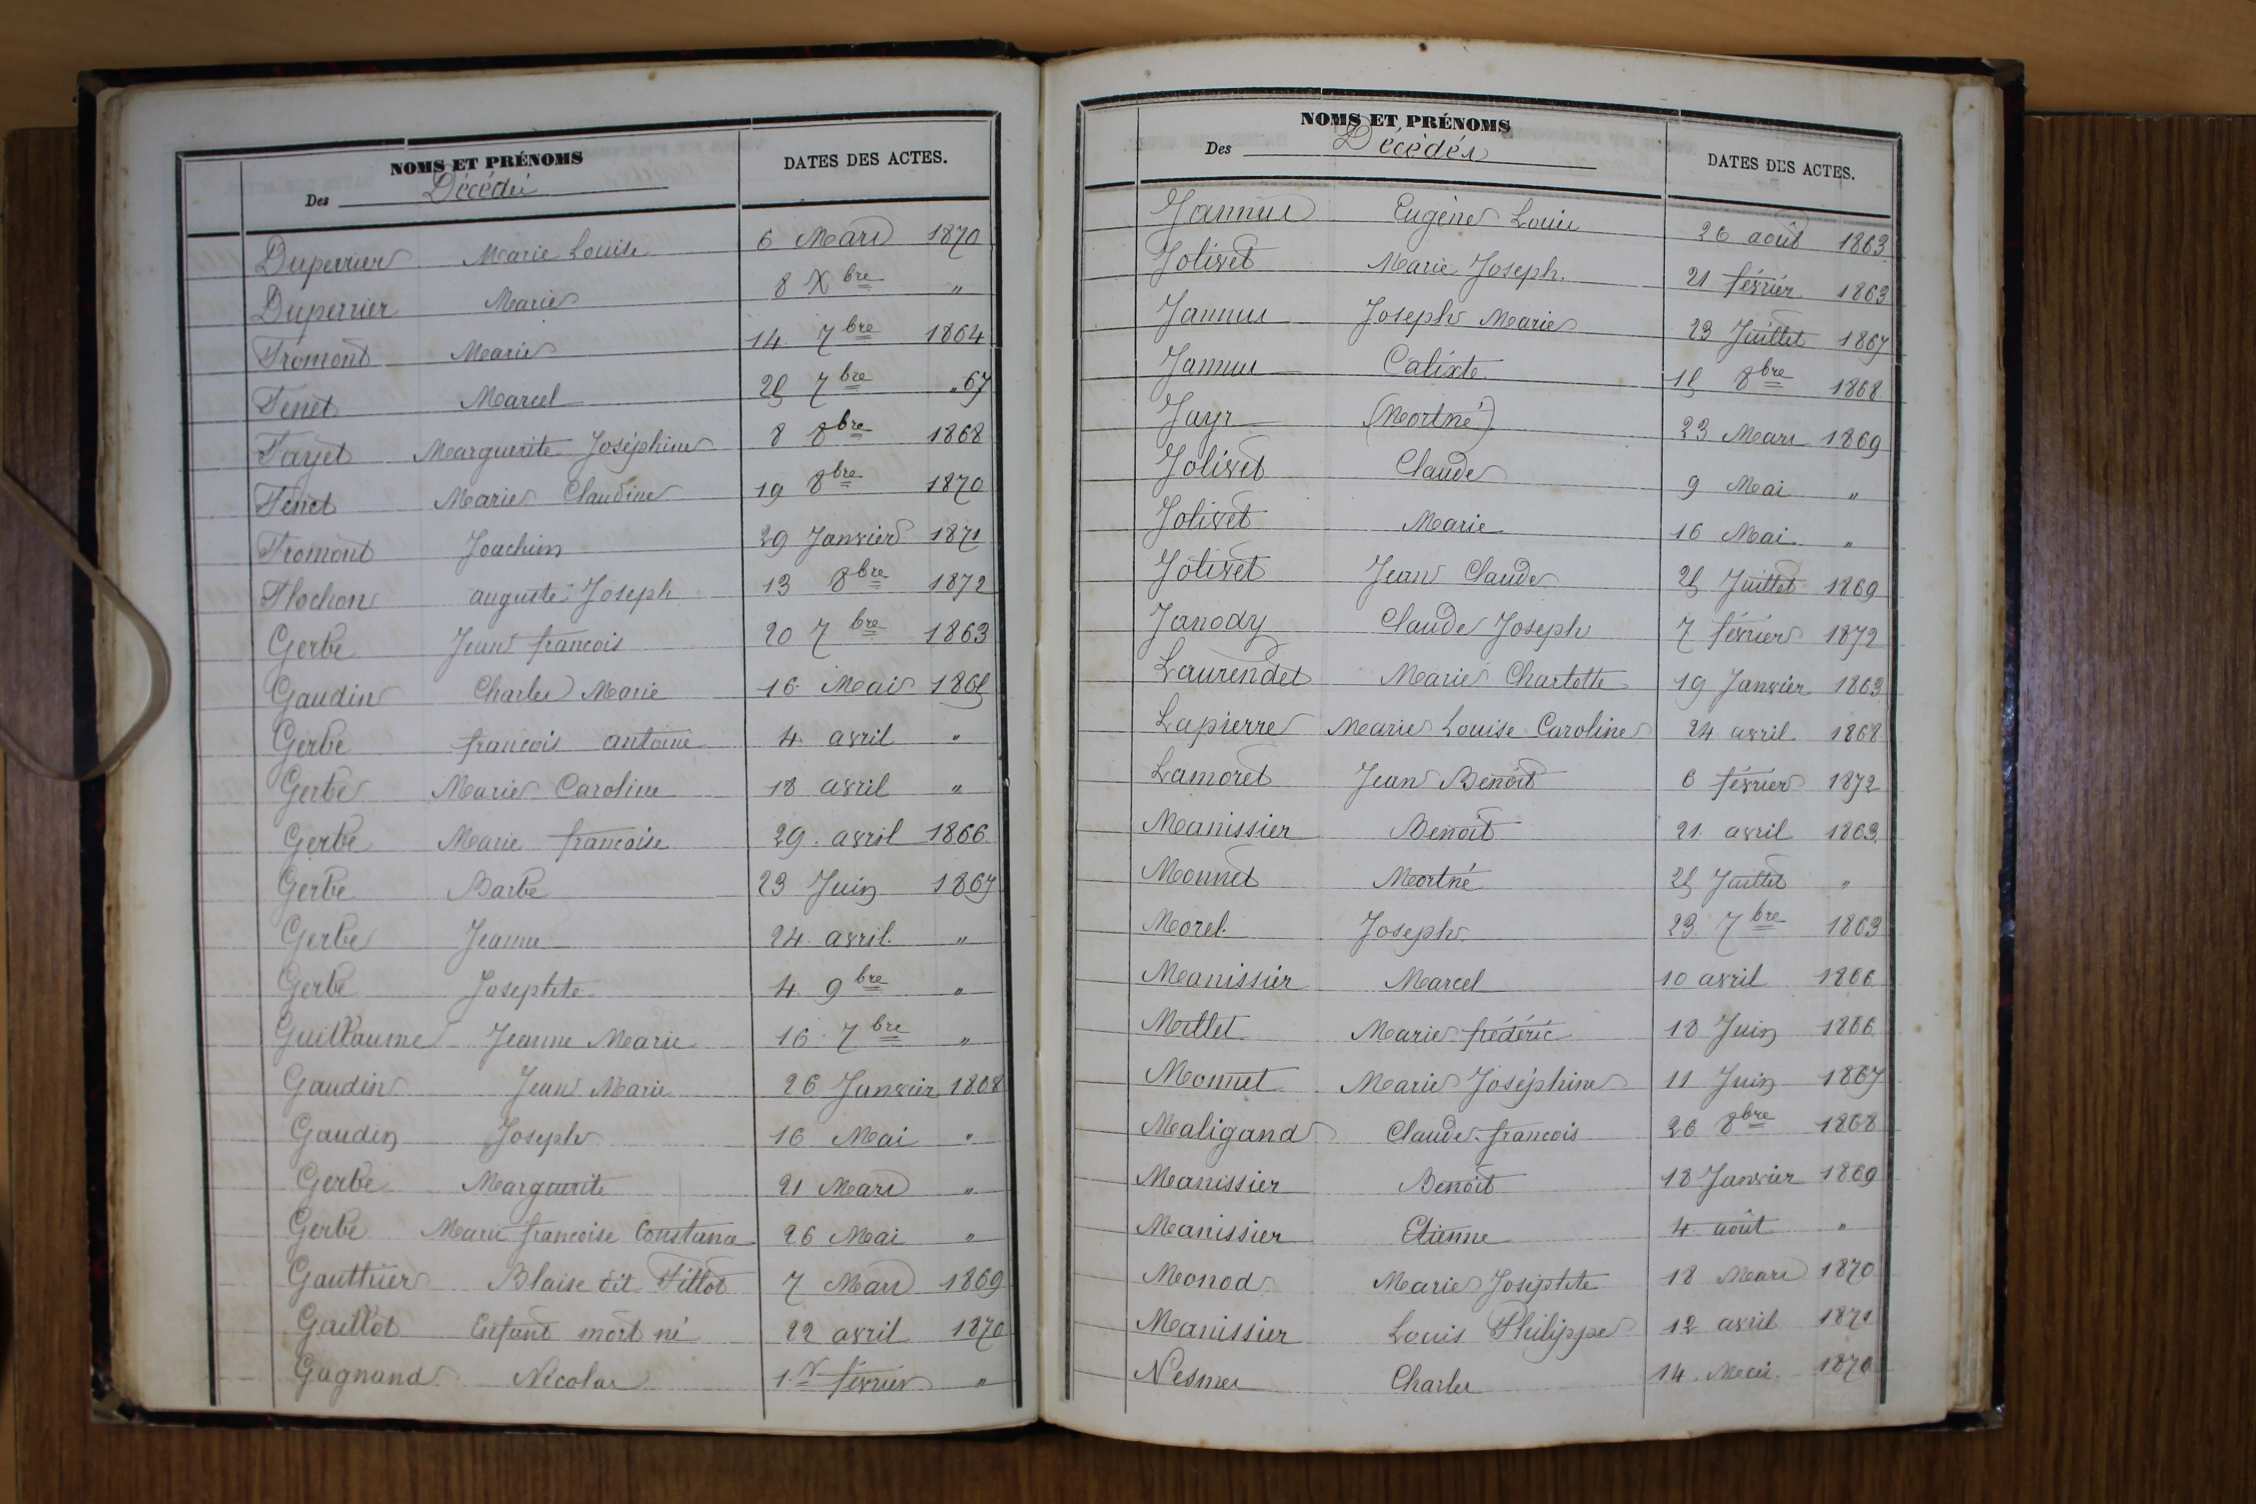 NOMS ET PRÉNOMS
Des Décédés
DATES DES ACTES.
Duperrier Marie Louise 6 Mars 1870
Duperrier Marie 8 Xbre "
Fromont Marie 14 7bre 1864
Fenet Marcel 25 7bre "67
Fayet Marguerite Joséphine 8 8bre 1868
Fenet Marie Claudine 19 8bre 1870
Fromont Joachim 29 Janvier 1871
Flochon auguste Joseph 13 8bre 1872
Gerbe Jean francois 20 7bre 1863
Gaudin Charles Marie 16 Mai 1865
Gerbe francois antoine 4 avril "
Gerbe Marie Caroline 18 avril "
Gerbe Marie francoise 29 avril 1866
Gerbe Barbe 23 Juin 1867
Gerbe Jeanne 24 avril "
Gerbe Josephte 4 9bre "
Guillaume Jeanne Marie 16 7bre "
Gaudin Jean Marie 26 Janvier 1868
Gaudin Joseph 16 Mai "
Gerbe Marguerite 21 Mars "
Gerbe Marie francoise Constance 26 Mai "
Gauthier Blaise dit Fillot 7 Mars 1869
Gaillot Enfant mort né 22 avril 1870
Gagnand Nicolas 1er février "
NOMS ET PRÉNOMS
Des Décédés
DATES DES ACTES.
Jannus Eugène Louis 26 août 1863
Jolivet Marie Joseph 21 février 1863
Jannus Joseph Marie 23 Juillet 1867
Jannus Calixte 15 8bre 1868
Jayr (Mortné) 23 Mars 1869
Jolivet Claude 9 Mai "
Jolivet Marie 16 Mai "
Jolivet Jean Claude 25 Juillet 1869
Janody Claude Joseph 7 février 1872
Laurendet Marie Charlotte 19 Janvier 1863
Lapierre Marie Louise Caroline 24 avril 1868
Lamoret Jean Benoit 6 février 1872
Manissier Benoit 21 avril 1863
Monnet Mortné 25 Juillet "
Morel Joseph 23 7bre 1863
Manissier Marcel 10 avril 1866
Millet Marie frédéric 18 Juin 1866
Monnet Marie Joséphine 11 Juin 1867
Maligand Claude francois 26 8bre 1868
Manissier Benoit 18 Janvier 1869
Manissier Etienne 4 août "
Monod Marie Joséphte 18 Mars 1870
Manissier Louis Philippe 12 avril 1871
Nesmes Charles 14 Mai 1870